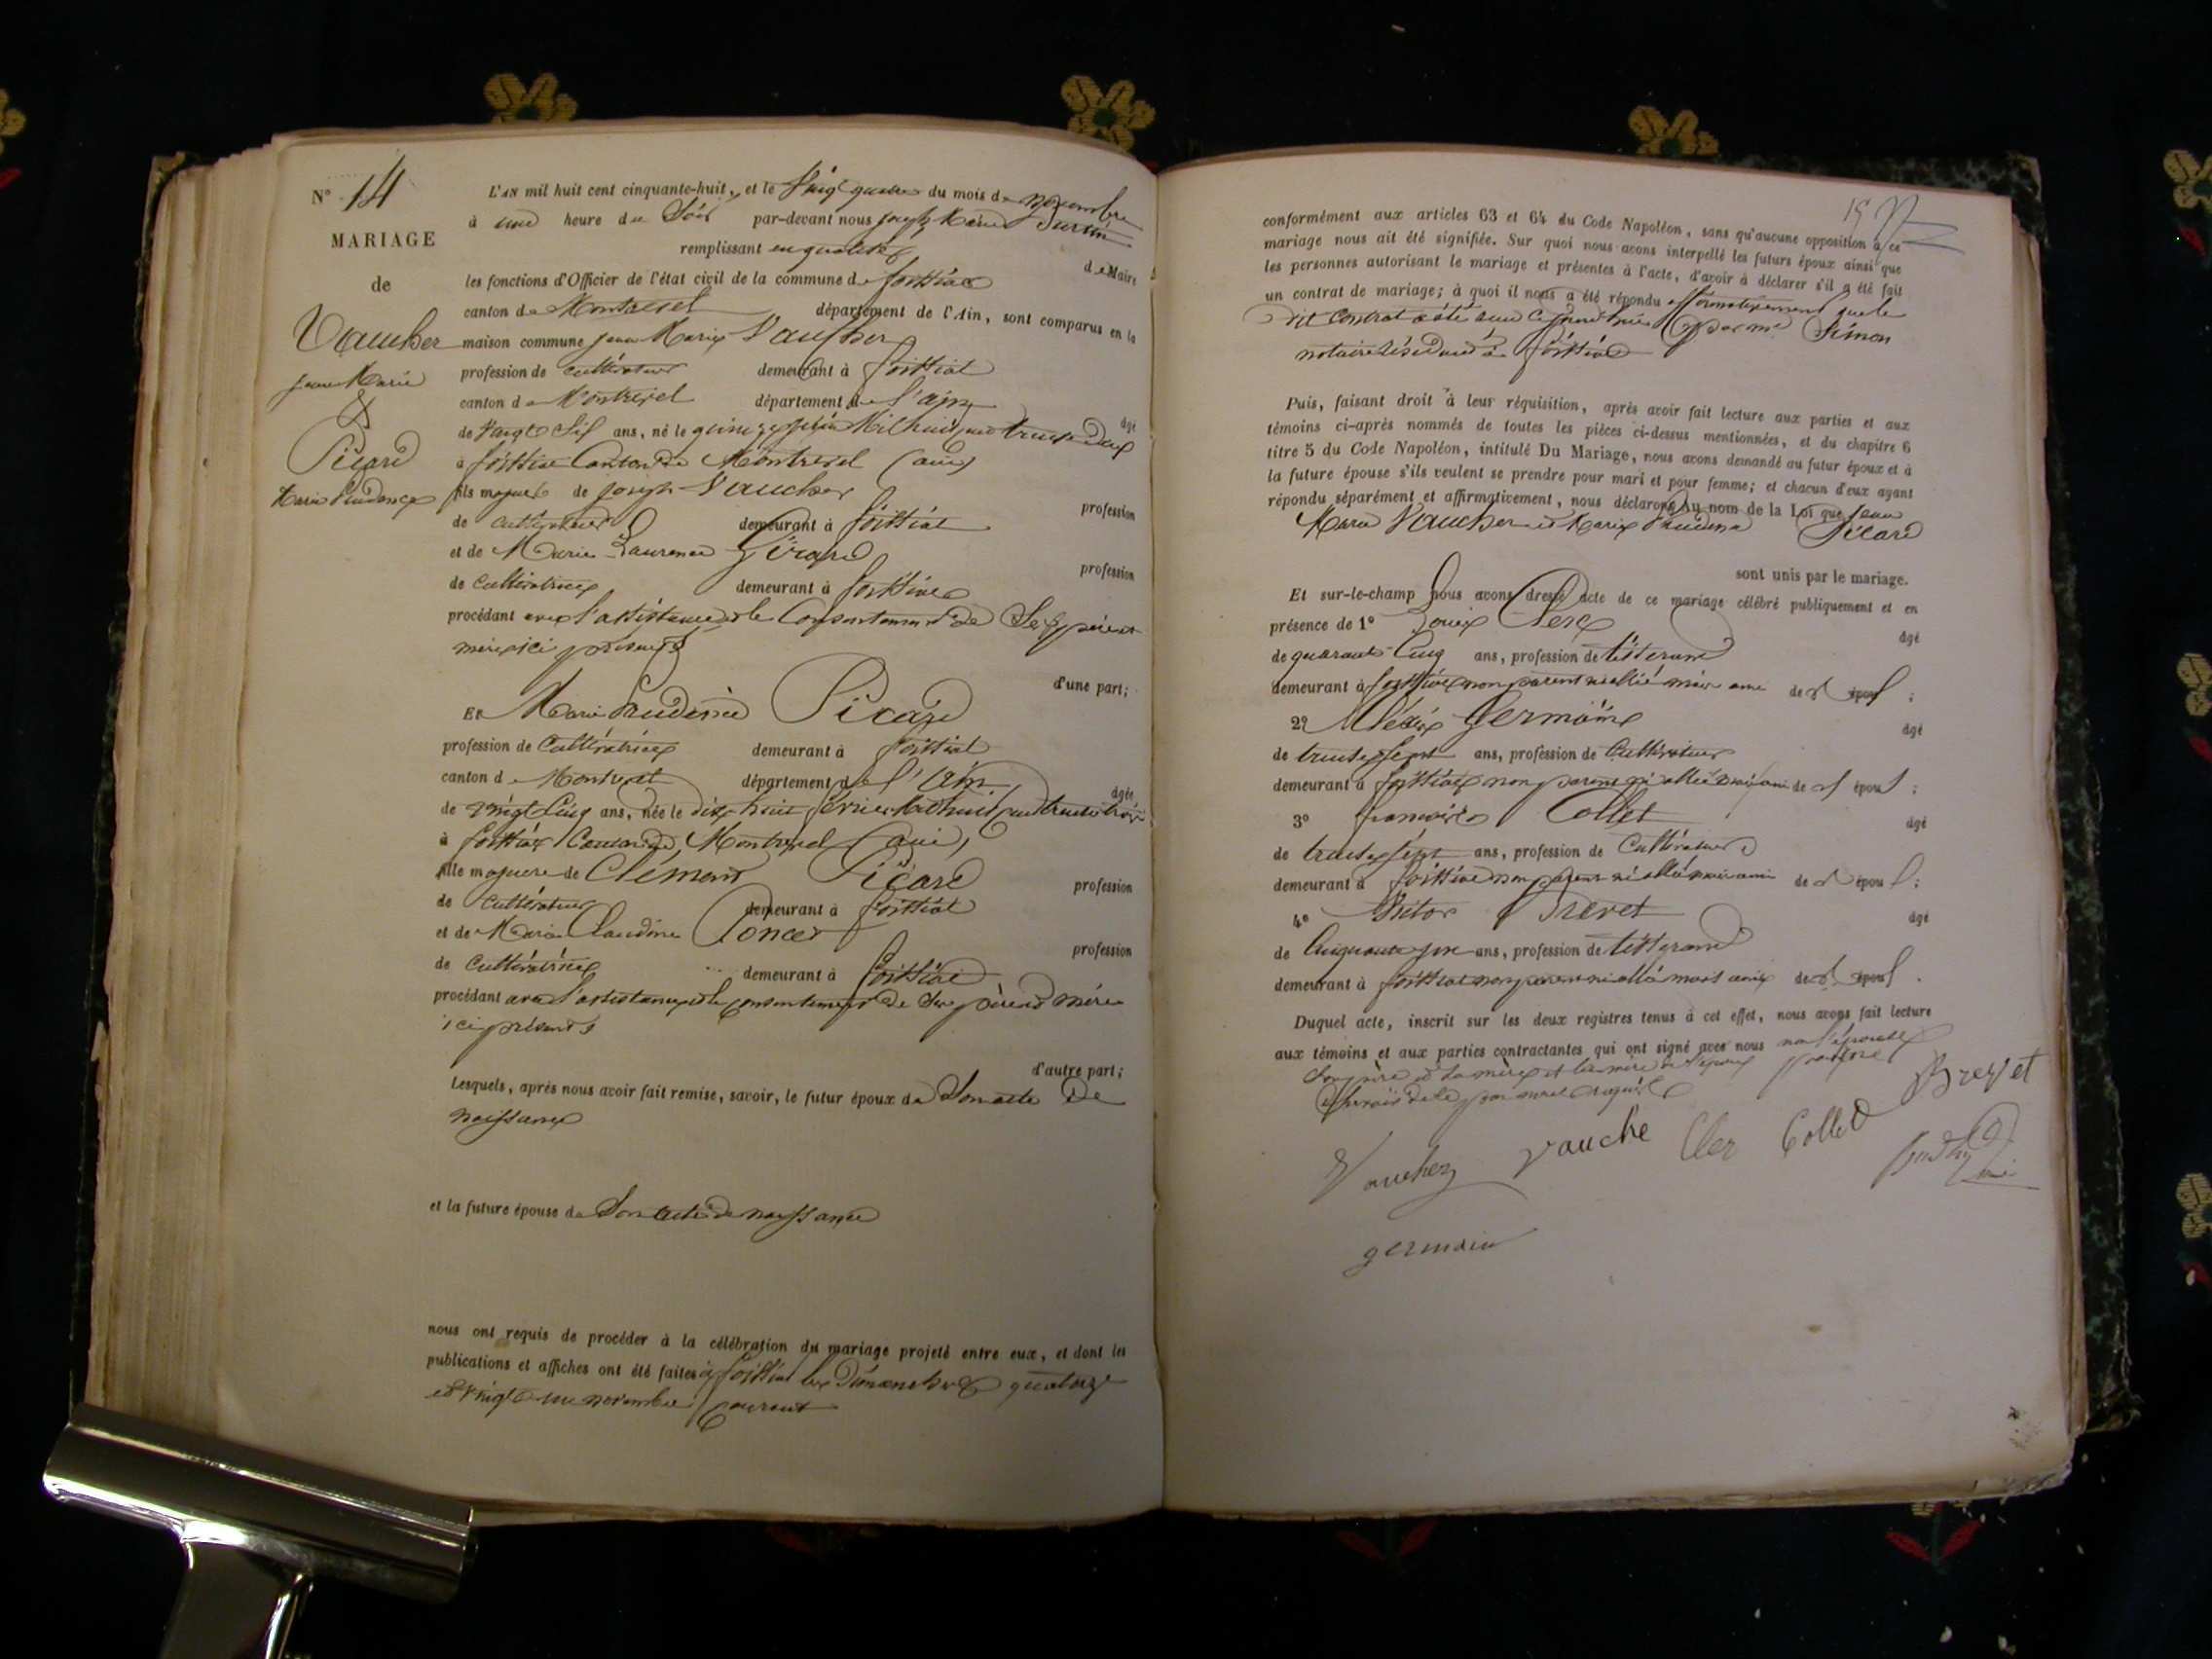 N° 14
MARIAGE
de
Vaucher
Jean Marie
&
Picard
Marie Prudence
L'AN mil huit cent cinquante-huit, et le Vingt quatre du mois de novembre
à une heure du Soir par-devant nous Joseph Marie
remplissant en qualité de Maire
les fonctions d'Officier de l'état civil de la commune de foissiat
canton de Montrevel département de l'Ain, sont comparus en la
maison commune Jean Marie Vaucher
profession de cultivateur demeurant à foissiat
canton de Montrevel département de l'ain âgé
de Vingt Six ans, né le quinze juin Mil huit cent trente deux
à foissiat Canton de Montrevel (ain)
fils majeur de Joseph Vaucher profession
de cultivateur demeurant à foissiat
et de Marie Laurence Girard profession
de cultivatrice demeurant à foissiat
procédant avec l'assistance et le Consentement de Ses père et
mère ici présents
d'une part;
Et Marie Prudence Picard
profession de Cultivatrice demeurant à foissiat
canton de Montrevel département de l'Ain âgée
de vingt Cinq ans, née le dix huit février Mil huit cent trente trois
à foissiat Canton de Montrevel (ain)
fille majeure de Clément Picard profession
de cultivateur demeurant à foissiat
et de Marie Claudine Poncet profession
de cultivatrice demeurant à foissiat
procédant avec l'assistance et le consentement de Ses père et mère
ici présents
d'autre part;
Lesquels, après nous avoir fait remise, savoir, le futur époux de Son acte De
naissance
et la future épouse de Son acte de naissance
nous ont requis de procéder à la célébration du mariage projeté entre eux, et dont les
publications et affiches ont été faites à foissiat les Dimanches quatorze
et vingt un novembre courant
conformément aux articles 63 et 64 du Code Napoléon, sans qu'aucune opposition à ce
mariage nous ait été signifiée. Sur quoi nous avons interpellé les futurs époux ainsi que
les personnes autorisant le mariage et présentes à l'acte, d'avoir à déclarer s'il a été fait
un contrat de mariage; à quoi il nous a été répondu affirmativement que le
dit contrat a été par me Simon
notaire résidant à foissiat
Puis, faisant droit à leur réquisition, après avoir fait lecture aux parties et aux
témoins ci-après nommés de toutes les pièces ci-dessus mentionnées, et du chapitre 6
titre 5 du Code Napoléon, intitulé Du Mariage, nous avons demandé au futur époux et à
la future épouse s'ils veulent se prendre pour mari et pour femme; et chacun d'eux ayant
répondu séparément et affirmativement, nous déclarons Au nom de la Loi que Jean
Marie Vaucher et Marie Prudence Picard
sont unis par le mariage.
Et sur-le-champ nous avons dressé acte de ce mariage célébré publiquement et en
présence de 1° Louis Clerc âgé
de quarante Cinq ans, profession de tisserand
demeurant à foissiat non parent ni allié mais ami de l'époux;
2° Germain âgé
de trente sept ans, profession de Cultivateur
demeurant à foissiat non parent ni allié mais ami de l'époux;
3° françois Collet âgé
de trente sept ans, profession de Cultivateur
demeurant à foissiat non parent ni allié mais ami de l'époux;
4° Victor Brevet âgé
de Cinquante ans, profession de tisserand
demeurant à foissiat non parent ni allié mais ami de l'époux.
Duquel acte, inscrit sur les deux registres tenus à cet effet, nous avons fait lecture
aux témoins et aux parties contractantes qui ont signé avec nous non l'épouse
Son père et Sa mère et la mère de l'époux pour ne
Savoir de ce requis
Brevet
Vaucher Vauché Cler Collet
germain